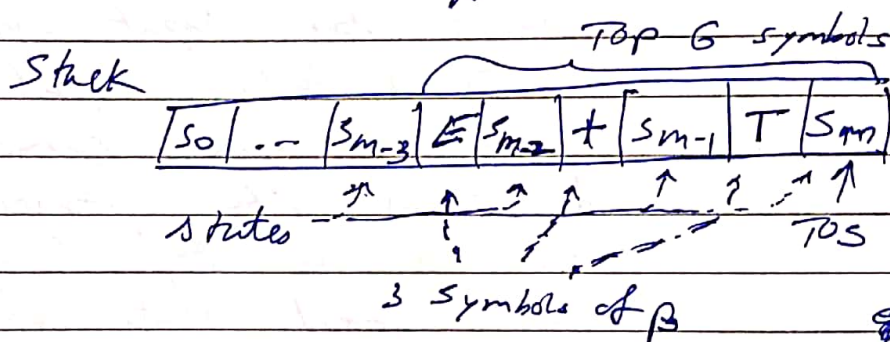 Top 6 symbols
Stack
S0 | .-- | Sm-3 | E | Sm-2 | + | Sm-1 | T | Sm
states
TOS
3 symbols of β